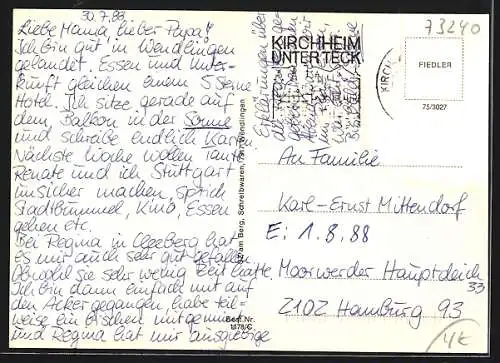 30.7.88
Liebe Mama, lieber Papa!
Ich bin gut in Wendlingen
gelandet. Essen und Unter-
kunft gleichen einem 5 Sterne
Hotel. Ich sitze gerade auf
dem Balkon in der Sonne
und schreibe endlich Karten.
Nächste Woche wollen Tante
Renate und ich Stuttgart
unsicher machen, sprich
Stadtbummel, Kino, Essen
gehen etc.
Bei Regina in Cleeberg hat
es mir auch sehr gut gefallen.
Obwohl sie sehr wenig Zeit hatte.
Ich bin dann einfach mit auf
den Acker gegangen, habe teil-
weise ein bischen mitgemacht
und Regina hat mir ausgiebige
Erfahrungen über
KIRCHHEIM
UNTER TECK
KIRCH
73240
FIEDLER
75/3027
am Berg, Schreibwaren, Wendlingen
Best. Nr.
1178/C
An Familie
Karl-Ernst Mittendorf
E: 1.8.88
Moorwerder Hauptdeich
33
2102 Hamburg 93
4€